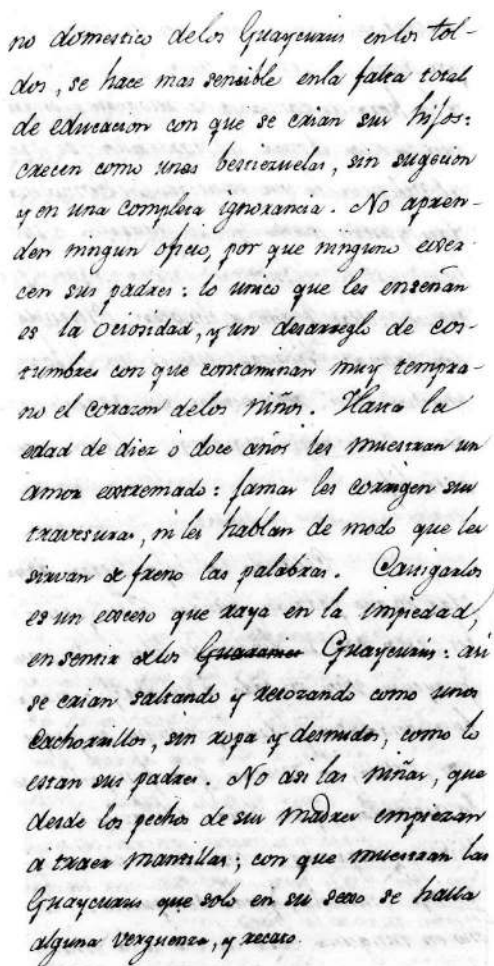 no domestico delos Guaycurus enlos tol-
dos, se hace mas sensible enla falta total
de educacion con que se crian sus hijos:
crecen como unas bestiezuelas, sin sugecion
y en una completa ignorancia. No apren-
den ningun oficio, por que ninguno exer-
cen sus padres: lo unico que les enseñan
es la ociosidad, y un desarreglo de cos-
tumbres con que contaminan muy tempra-
no el corazon delos niños. Hasta la
edad de diez ó doce años les muestran un
amor extremado: jamas les corrigen sus
travesuras, ni les hablan de modo que les
sirvan de freno las palabras. Castigarlos
es un exceso que raya en la impiedad,
en sentir delos Guaranies Guaycurus: asi
se crian saltando y retozando como unos
cachorrillos, sin ropa y desnudos, como lo
estan sus padres. No asi las niñas, que
desde los pechos de sus madres empiezan
á traer mantillas; con que muestran las
Guaycurus que solo en su sexo se halla
alguna verguenza, y recato.